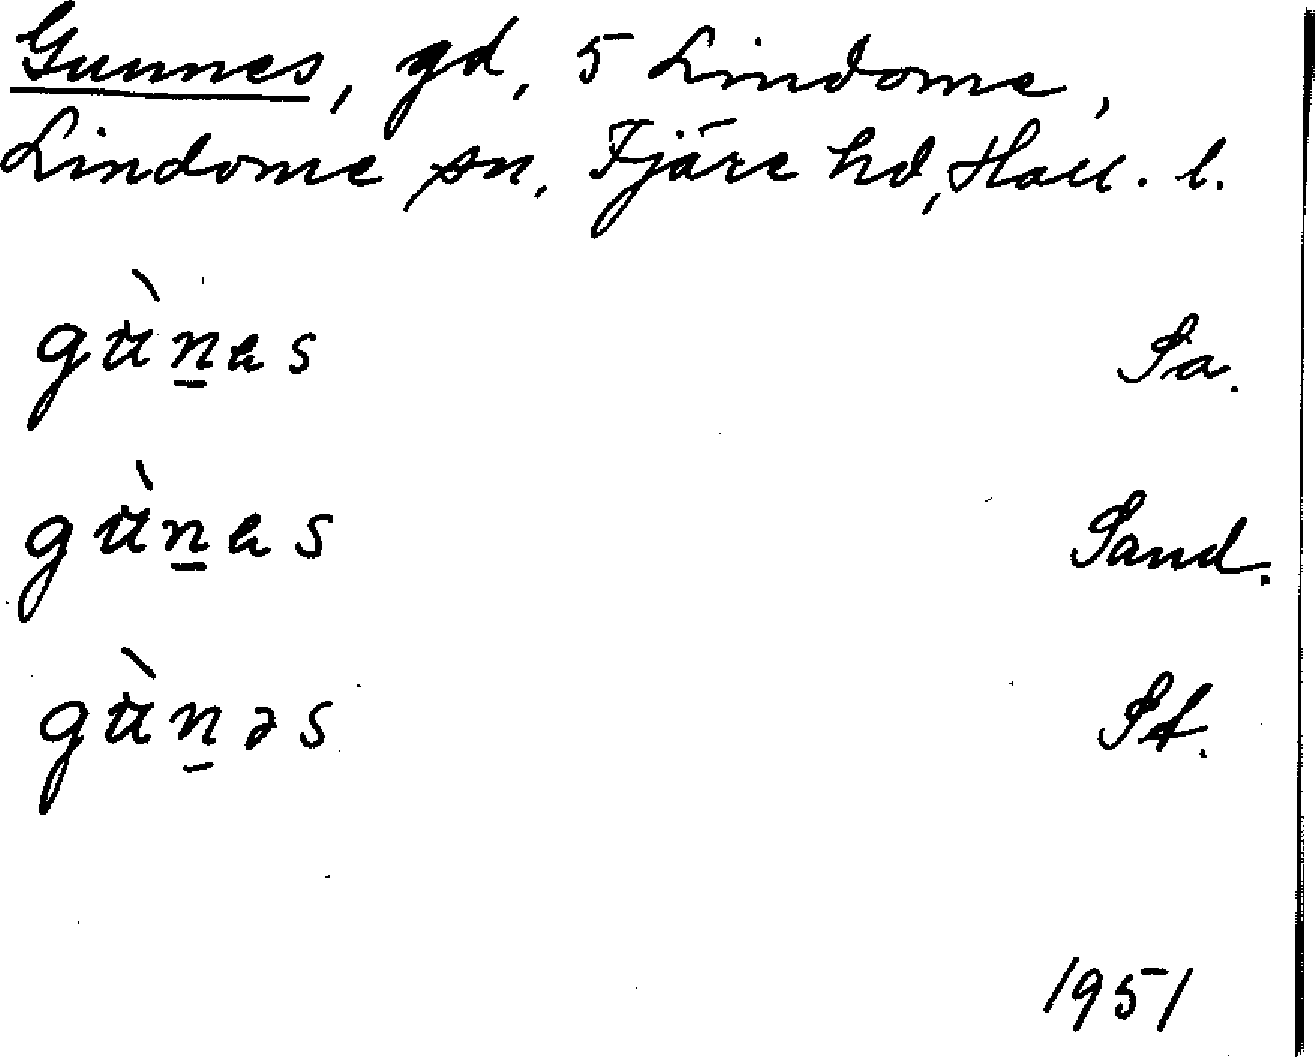 Gunnes, gd, 5 Lindome,
Lindome sn, Fjäre hd, Hall. l.
gùn̲as Sa.
gùn̲as Sand.
gùn̲əs St.
1951